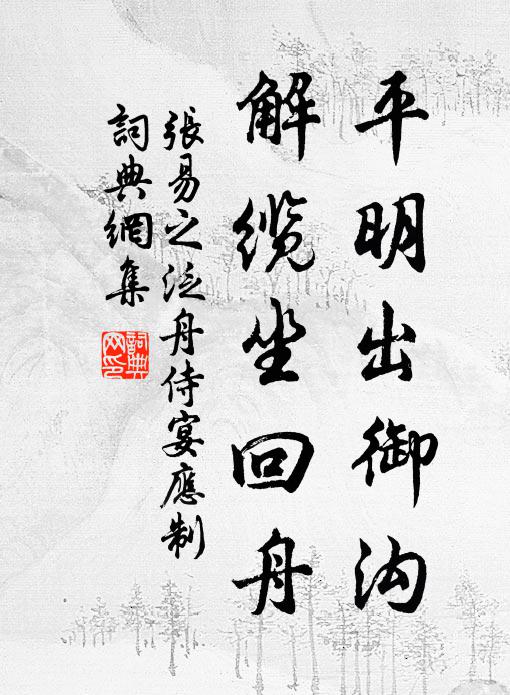 平明出御沟
解缆坐回舟
張易之泛舟侍宴應制
詞典網集
詞典網印